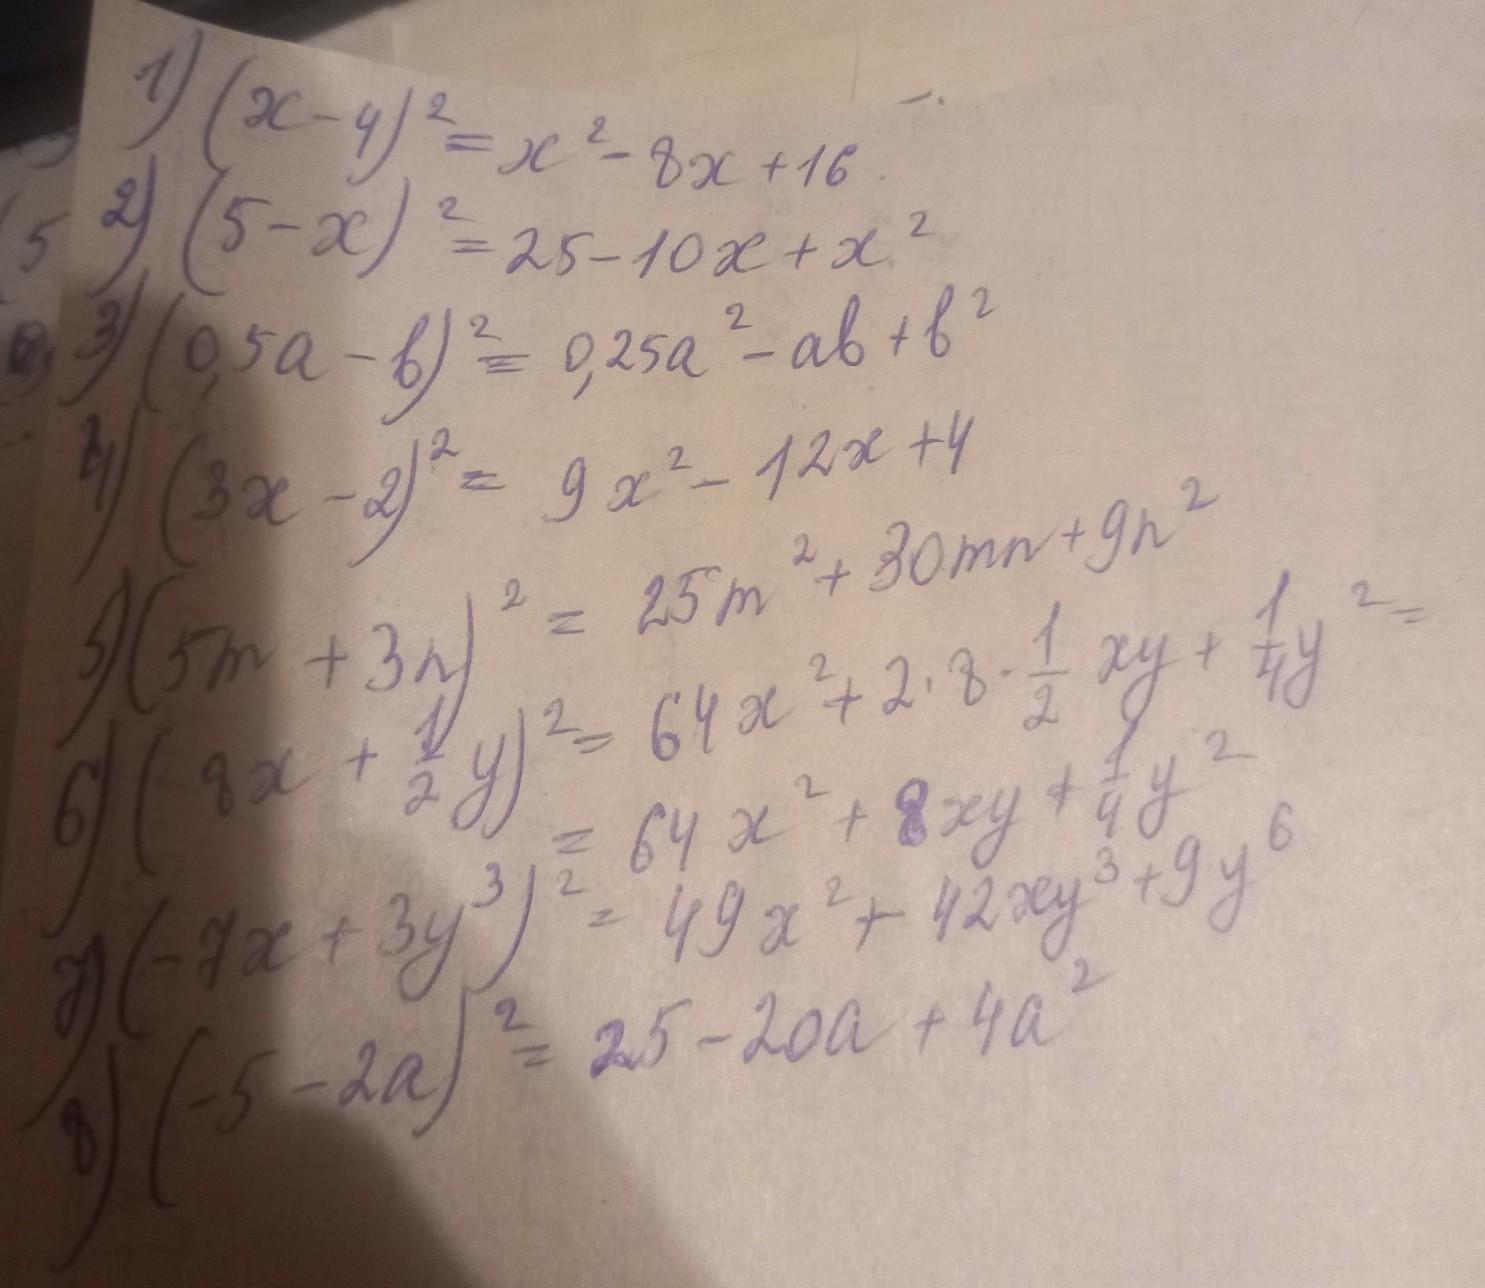 1) (x-4)² = x² - 8x + 16
2) (5-x)² = 25 - 10x + x²
3) (0,5a - b)² = 0,25a² - ab + b²
4) (3x - 2)² = 9x² - 12x + 4
5) (5m + 3n)² = 25m² + 30mn + 9n²
6) (8x + 1/2 y)² = 64x² + 2·8·1/2 xy + 1/4 y² =
= 64x² + 8xy + 1/4 y²
7) (-7x + 3y³)² = 49x² + 42xy³ + 9y⁶
8) (-5 - 2a)² = 25 - 20a + 4a²